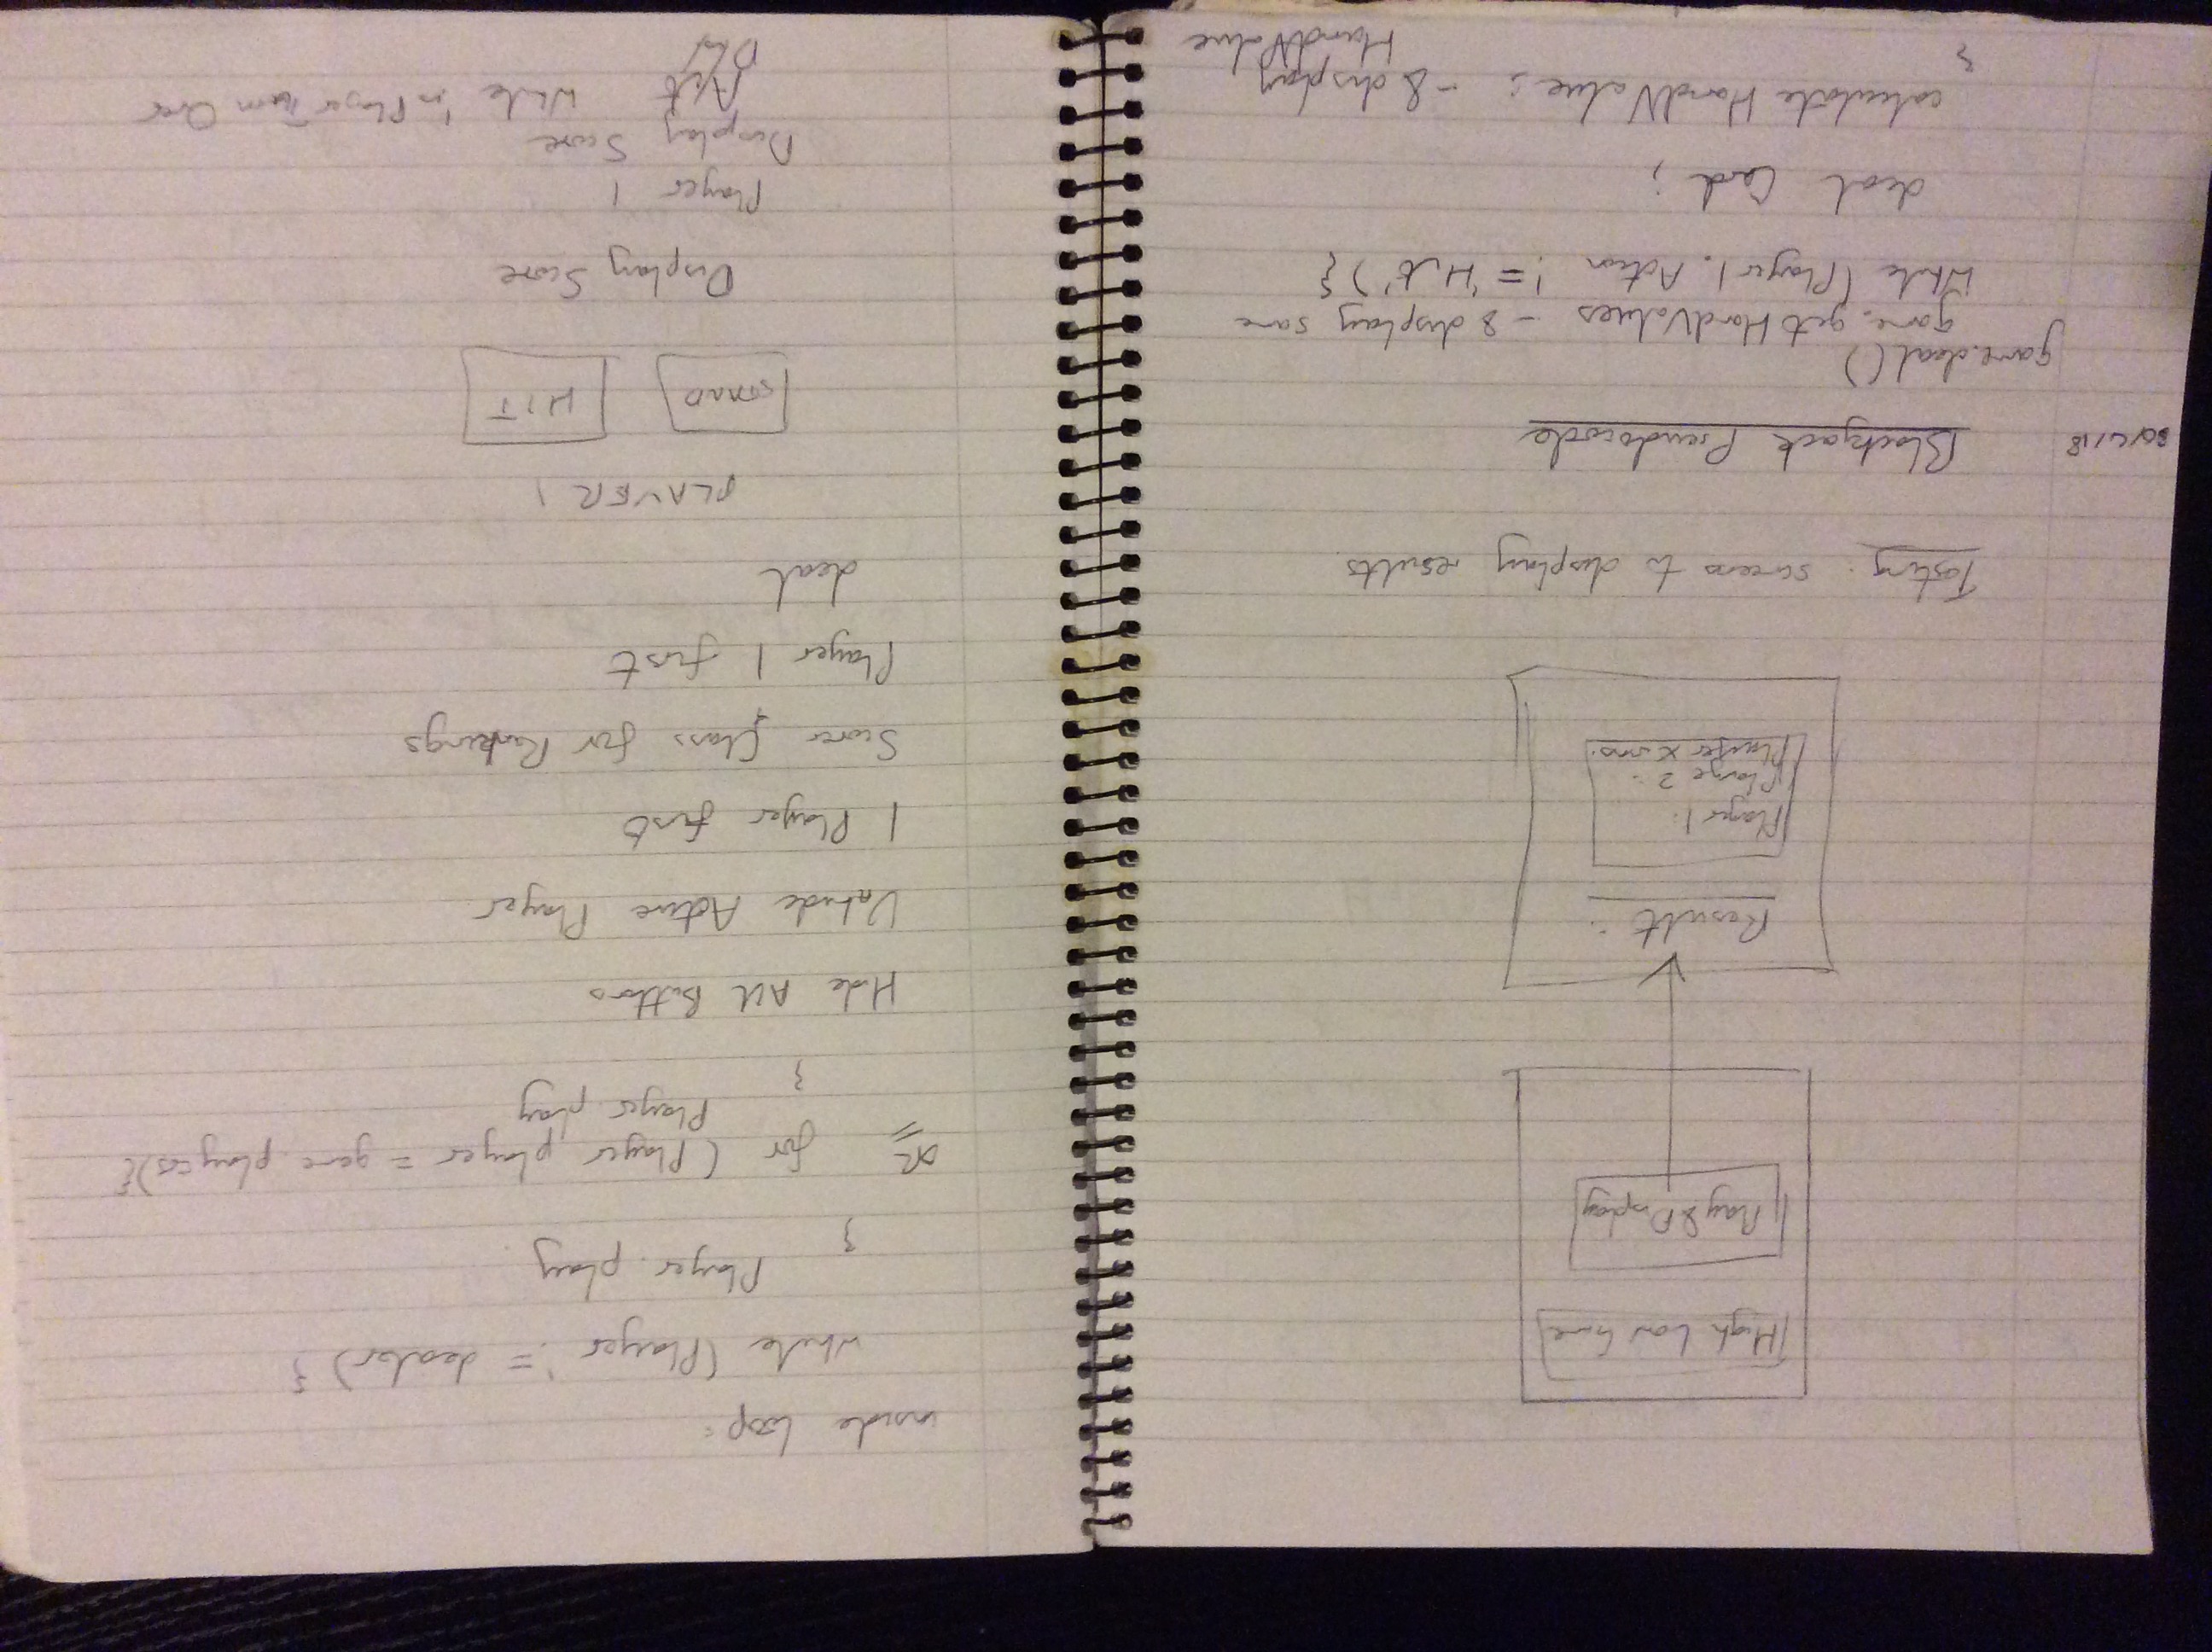 High Low Game
Play & Display
Result :
Player 1 :
Playe 2 :
Player X wins.
Testing : screens to display results.
Blackjack Pseudocode
game.deal()
game.getHandValues - & display same
While (Player1.Action != 'Hit') {
deal Card ;
calculate HandValue ; - & display
HandValue
}
inside loop :
while (Player != dealer) {
Player.play
}
OR for (Player player = game.players){
Player.play
}
Hide All Buttons
Unhide Active Player
1 Player first
Scorer Class for Rankings
Player 1 first
deal
PLAYER 1
STAND HIT
Display Score
Player 1
Display Score
While Player Turn Over